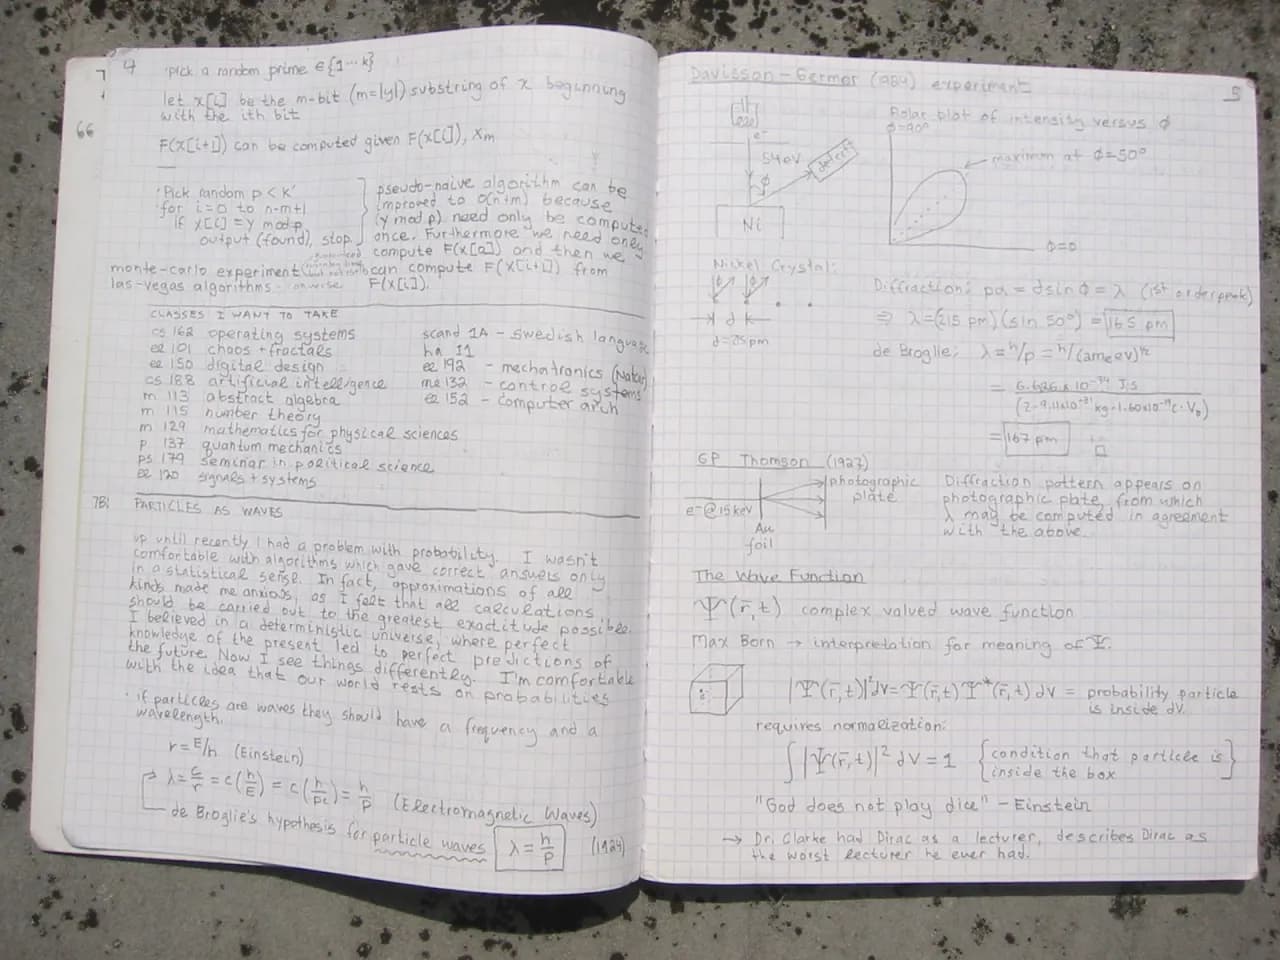 4
66
·Pick a random prime ∈ {1 ... k}
let x[i] be the m-bit (m=|y|) substring of x beginning
with the ith bit
F(x[i+1]) can be computed given F(x[i]), xm
Pick random p < k
for i = 0 to n-m+1
if x[i] = y mod p
output (found), stop.
pseudo-naive algorithm can be
improved to O(n+m) because
(y mod p) need only be computed
once. Furthermore we need only
compute F(x[0]) and then we
can compute F(x[i+1]) from
F(x[i]).
monte-carlo experiment
las-vegas algorithms
CLASSES I WANT TO TAKE
cs 162 operating systems
ee 101 chaos + fractals
ee 150 digital design
cs 188 artificial intelligence
m 113 abstract algebra
m 115 number theory
m 129 mathematics for physical sciences
p 137 quantum mechanics
ps 179 seminar in political science
ee 120 signals + systems
scand 1A - swedish language
ha 11
ee 192 - mechatronics
me 132 - control systems
ee 152 - computer arch
7B: PARTICLES AS WAVES
up until recently I had a problem with probability. I wasn't
comfortable with algorithms which gave correct answers only
in a statistical sense. In fact, approximations of all
kinds made me anxious, as I felt that all calculations
should be carried out to the greatest exactitude possible.
I believed in a deterministic universe, where perfect
knowledge of the present led to perfect predictions of
the future. Now I see things differently. I'm comfortable
with the idea that our world rests on probabilities
· if particles are waves they should have a frequency and a
wavelength.
r = E/h (Einstein)
λ = c/r = c(h/E) = c(h/pc) = h/p (Electromagnetic Waves)
de Broglie's hypothesis for particle waves λ = h/p (1924)
5
Davisson-Germer experiment
e-
54 eV
ϕ
detector
Ni
Polar plot of intensity versus ϕ
ϕ=90°
maximum at ϕ=50°
ϕ=0
Nickel Crystal:
ϕ ϕ
d
d=215 pm
Diffraction: pd = d sin ϕ = λ (1st order peak)
⇒ λ = (215 pm)(sin 50°) = 165 pm
de Broglie: λ = h/p = h/(2meeV)^½
= 6.626 x 10^-34 J·s / (2·9.11x10^-31 kg·1.60x10^-19 C·V0)
= 167 pm
GP Thomson (1927)
e- @ 15 keV
Au
foil
photographic
plate
Diffraction pattern appears on
photographic plate, from which
λ may be computed in agreement
with the above.
The Wave Function
Ψ(r̄,t) complex valued wave function
Max Born → interpretation for meaning of Ψ.
|Ψ(r̄,t)|²dV = Ψ(r̄,t) Ψ*(r̄,t) dV = probability particle
is inside dV.
requires normalization:
∫|Ψ(r̄,t)|² dV = 1 {condition that particle is
inside the box}
"God does not play dice" - Einstein
→ Dr. Clarke had Dirac as a lecturer, describes Dirac as
the worst lecturer he ever had.